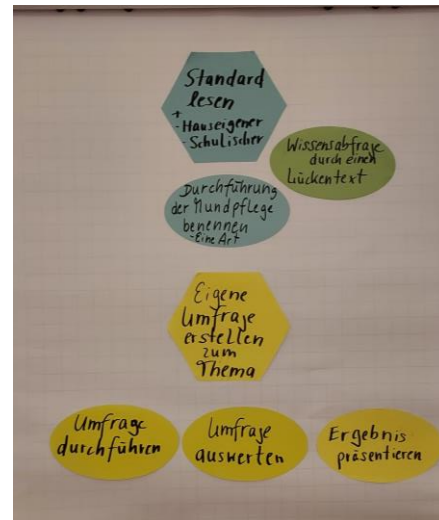 Standard
lesen
+
- Hauseigener
- Schulischer
Wissensabfrage
durch einen
Lückentext
Durchführung
der Mundpflege
benennen
- Eine Art
Eigene
Umfrage
erstellen
zum
Thema
Umfrage
durchführen
Umfrage
auswerten
Ergebnis
präsentieren